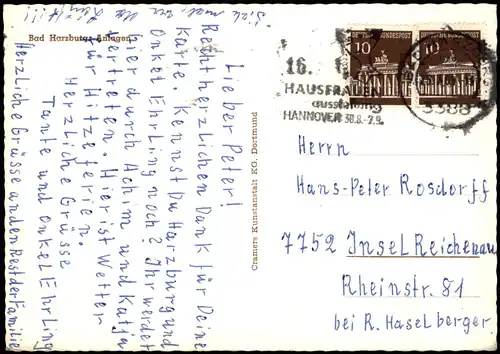 Bad Harzburg, Anlagen
Lieber Peter!
Recht herzlichen Dank für Deine
Karte. Kennst Du Harzburg und
Onkel Ehrling noch? Ihr werdet
hier durch Achim und Katja
vertreten. Hier ist Wetter
für Hitzeferien.
Herzliche Grüsse
Tante und Onkel Ehrling
Herzliche Grüsse an den Rest der Familie
Cramers Kunstanstalt KG. Dortmund
16.
HAUSFRAUEN
ausstellung
HANNOVER 30.8.-7.9.
DEUTSCHE BUNDESPOST
10
DEUTSCHE BUNDESPOST
10
3388
Herrn
Hans-Peter Rosdorff
7752 Insel Reichenau
Rheinstr. 81
bei R. Haselberger